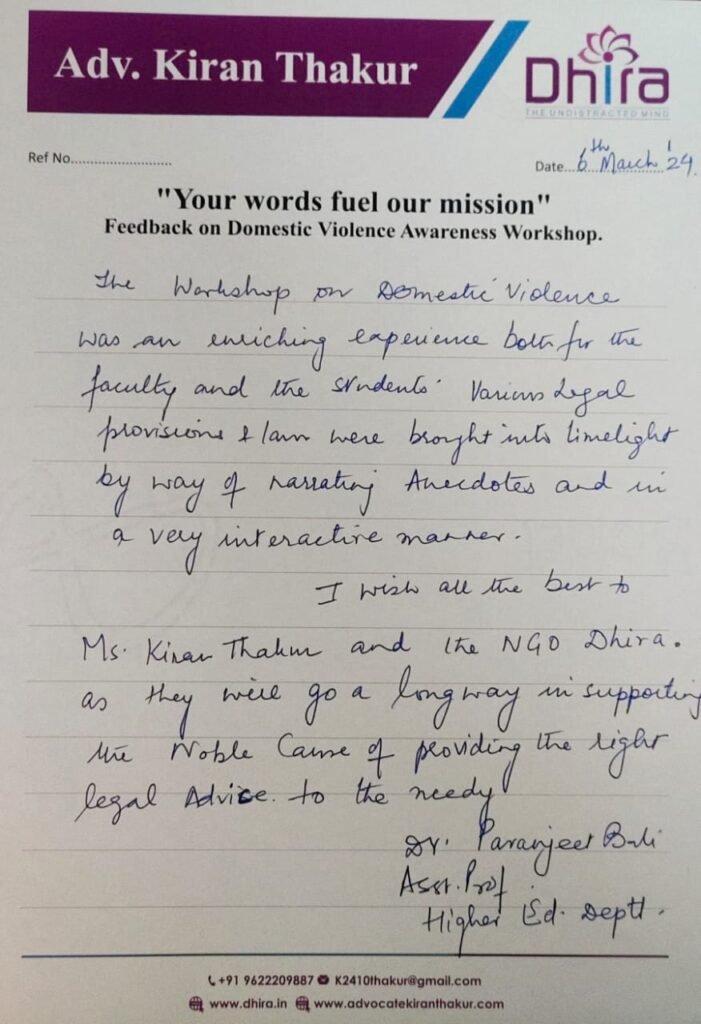 Adv. Kiran Thakur
Dhira
THE UNDISTRACTED MIND
Ref No............................
Date...6th March '24.
"Your words fuel our mission"
Feedback on Domestic Violence Awareness Workshop.
The Workshop on Domestic Violence
was an enriching experience both for the
faculty and the students. Various Legal
provisions & law were brought into limelight
by way of narrating Anecdotes and in
a very interactive manner.
I wish all the best to
Ms. Kiran Thakur and the NGO Dhira.
as they will go a long way in supporting
the Noble Cause of providing the right
legal Advice. to the needy
Dr. Paranjeet Bali
Asst. Prof.
Higher Ed. Deptt.
+91 9622209887 K2410thakur@gmail.com
www.dhira.in www.advocatekiranthakur.com